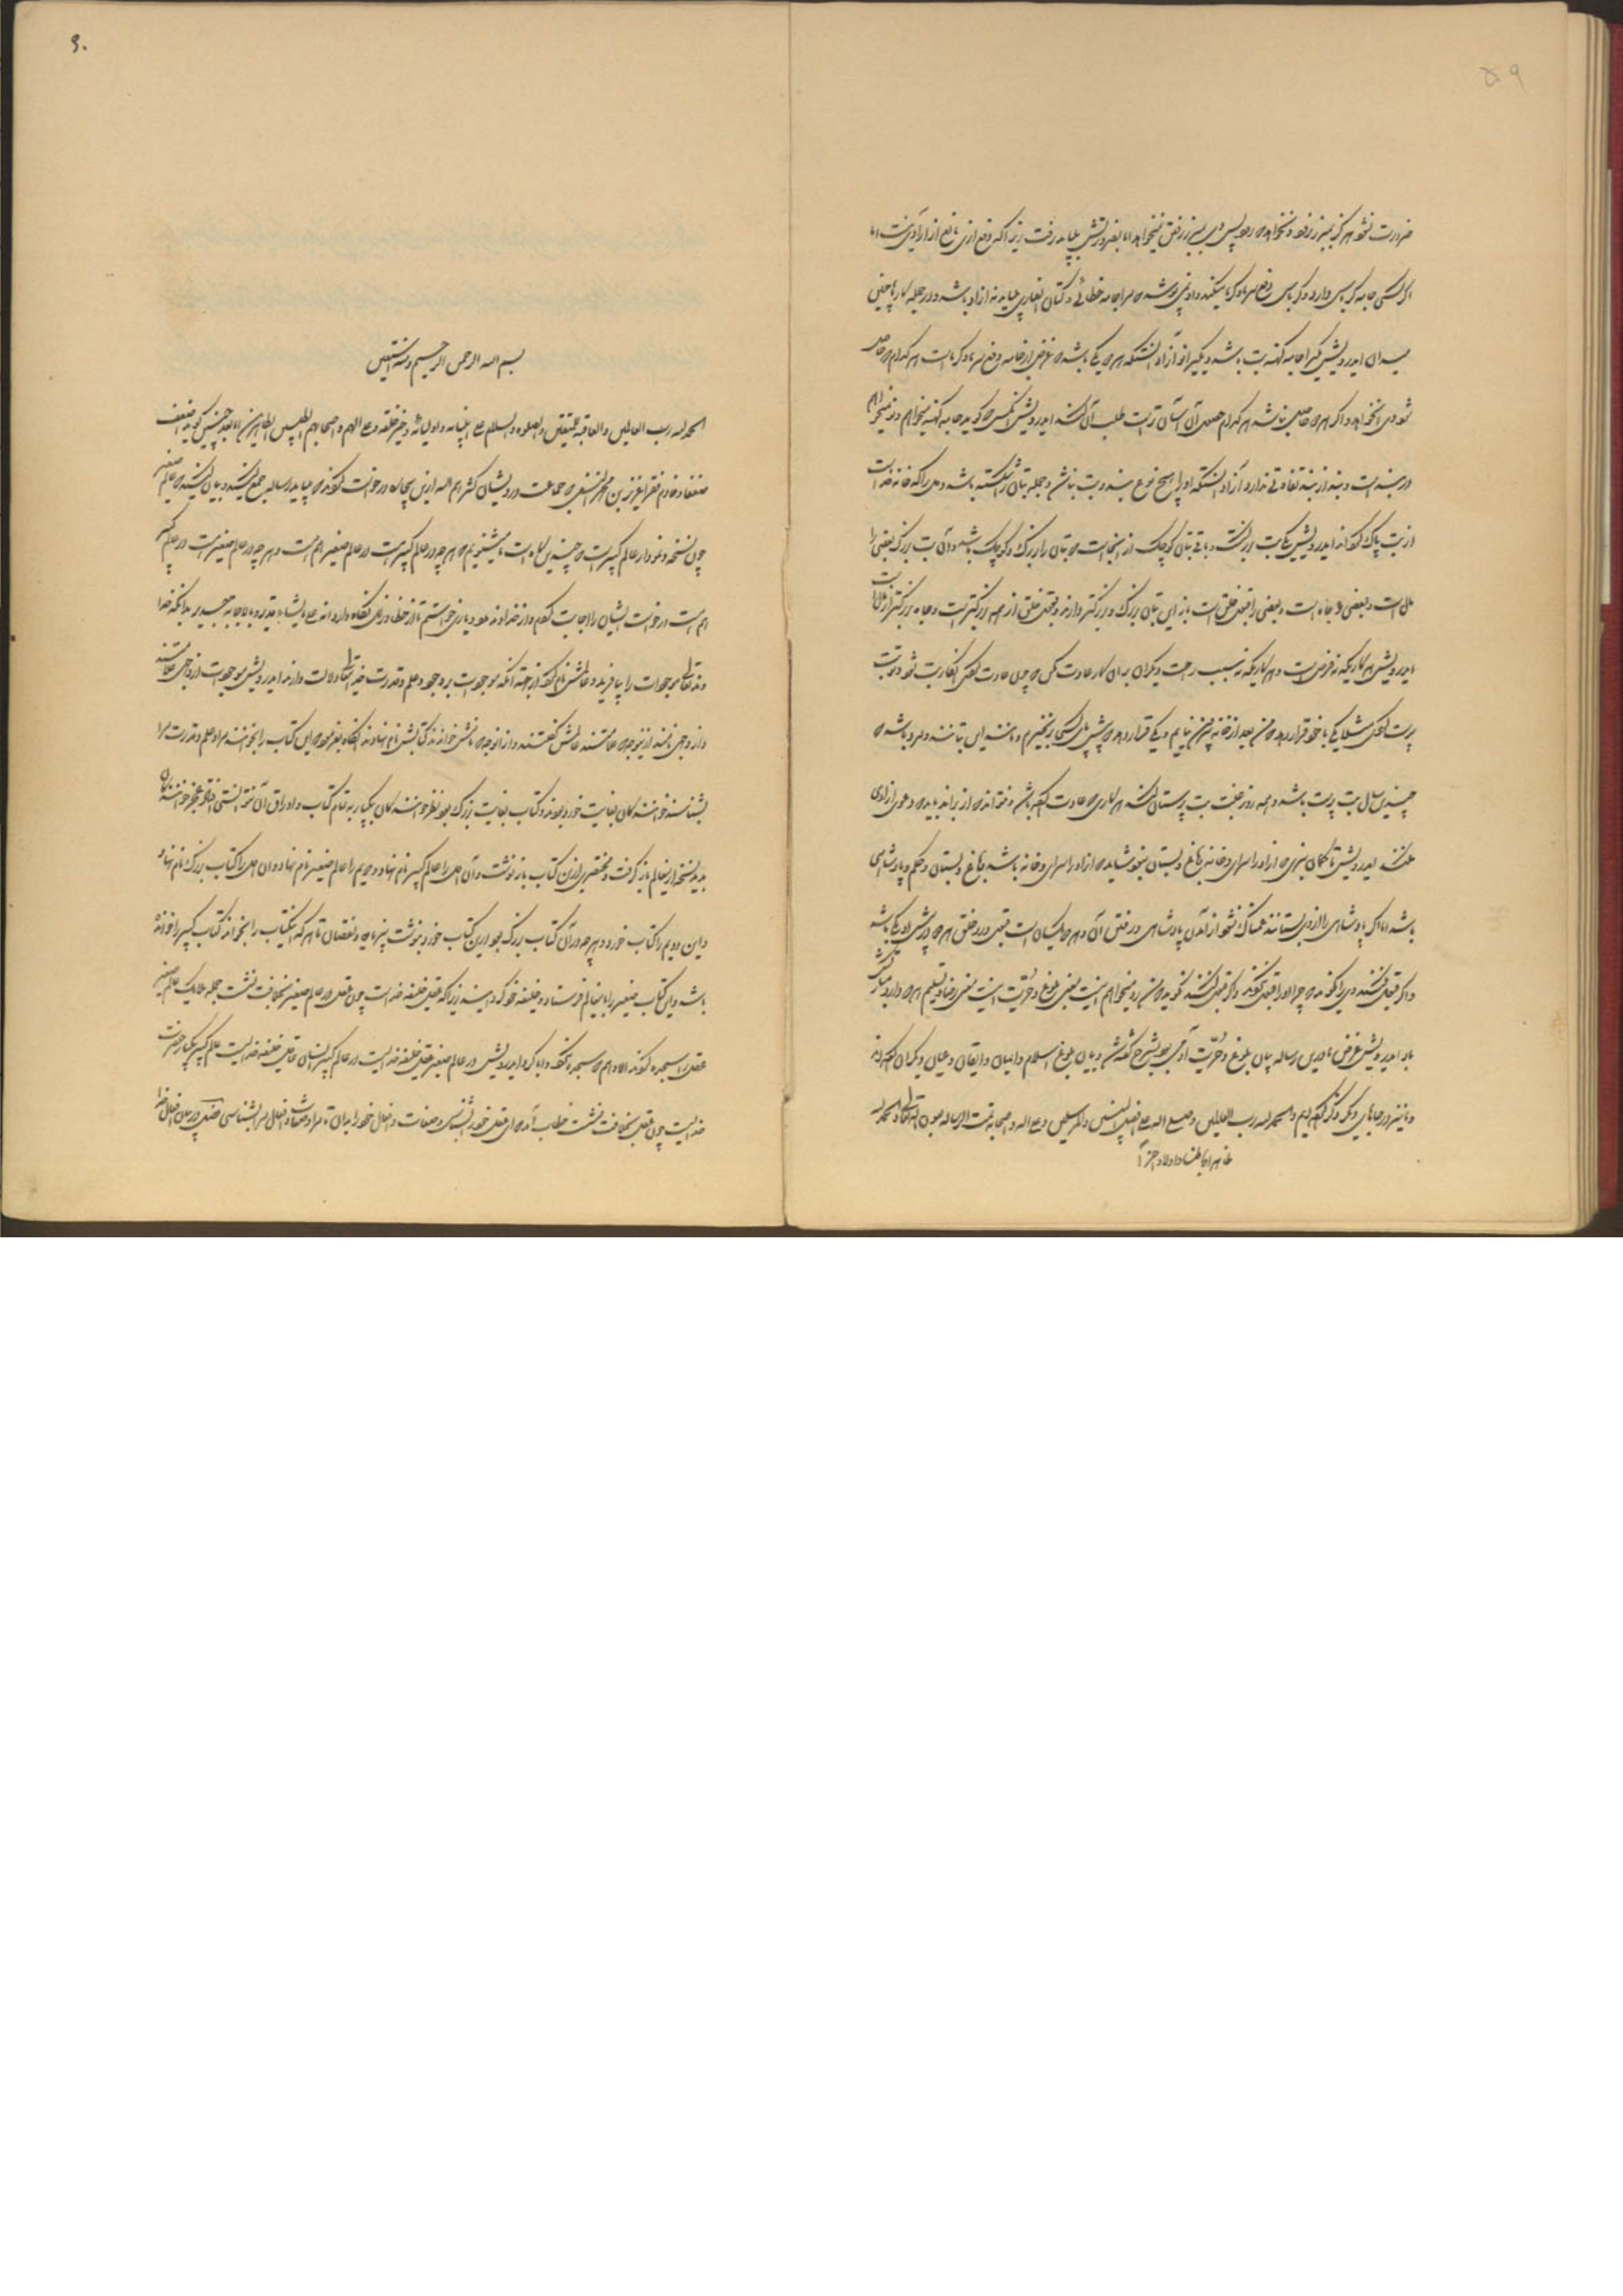 ۵۹
ضرورت نشود هرگز بمبرز نرود و نخواهد که رود پس وی بمبرز رفتن نمیخواهد اما بضرورتش میباید رفت زیرا که دفع اذی مانع از آزادی نیست اما
اگر کسی جامه کرباس دارد و کرباس دفع سرما و گرما میکند و او نمی پوشد که مرا جامه خطائی و کتان انصاری میباید نه آزاد باشد و در جمله کارها چنین
میدان ای درویش یکی را جامه کهنه بت باشد و یکی را نو آزاد آنستکه هر دو یکی باشد که غرض از جامه دفع سرما و گرماست هر کدام که حاصل
شود آن خواهد و اگر هر دو حاصل نباشد هر کدام حصول آن آسان تر است طلب آن کند ای درویش آنکس که گوید جامه کهنه میخواهم و نو نمیخواهم
در بند است و بند از بند تفاوتی ندارد آزاد آنستکه او را هیچ نوع بند و بت نباشد و جمله بتان را شکسته باشد و دل را که خانه خداست
از بت پاک کند ای درویش یک بت بزرگست و باقی بتان کوچک از اینجاست که بتان را بزرگ و کوچک باشد و آن بت بزرگ بعضی را
مال است و بعضی را جاه است و بعضی را قبول خلق است باز این بتان بزرگ و بزرگتر دارند و قبول خلق از همه بزرگتر است و جاه بزرگتر از مال است
ای درویش هر کاریکه نه فرض است و هر کاریکه نه سبب راحت دیگران بر آن کار عادت مکن که چون عادت کنی آنکار بت شود و تو بت
پرست گردی مثلا یکی با خود قرار دهد که من بعد از خانه بیرون نیایم و یکی قرار دهد که پیش پای کسی برنخیزم و مانند این بتانند و مرد باشد که
چندین سال بت پرست باشد و همه روز عیب بت پرستان کند هر کاری که عادت کرده باشد و نتواند که از براند نباید که دعوی آزادی
کند ای درویش تا گمان نبری که آزاد را سرای و خانه باغ و بستان نبود شاید که آزاد را سرای و خانه باشد و باغ و بستان و حکم و پادشاهی
باشد اما اگر پادشاهی را از وی بستانند غمناک نشود از آمدن پادشاهی در رفتن آن وی را یکسان است قبول و رد خلق هر دو پیش او یکی باشد
و اگر قبول کنند وی را نگوید که چرا او را قبول نکنند و اگر قبول کنند نگوید که من رد میخواهم اینست معنی بلوغ و حریت اینست معنی رضا و تسلیم هر که دارد مبارکش
باد ای درویش غرض ما درین رساله بیان بلوغ و حریت آدمی بود بشرح گفته شد و بیان بلوغ اسلام و ایمان و ایقان و عیان و دیگران گفته اند
و ما نیز در جاهای دیگر ذکر کرده ایم و الحمد لله رب العالمین و صلی الله علی افضل النبیین و المرسلین و علی اله و اصحابه تمت الرساله بعون الله تعالی و الحمد لله
ظاهرا و باطنا و اولا و آخرا
۹۰
بسم الله الرحمن الرحیم و به نستعین
الحمد لله رب العالمین و العاقبة للمتقین و الصلوة و السلام علی انبیائه و اولیائه و خیر خلقه و علی الهم و اصحابهم الطیبین الطاهرین اما بعد چنین گوید اضعف
ضعفا و خادم فقرا عزیز بن محمد النسفی که جماعت درویشان کثرهم الله ازین بیچاره درخواست کردند که میباید رساله جمع کنید و بیان کنید که عالم صغیر
چون نسخه و نمودار عالم کبیر است که چندین گاه است میشنویم که هر چه در عالم کبیر است در عالم صغیر هم است و هر چه در عالم صغیر است در عالم کبیر
هم است درخواست ایشان را اجابت کردم و از خداوند مدد و یاری خواستم تا از خطا و زلل نگاه دارد انه علی ما یشاء قدیر و بالاجابة جدیر بدانکه خدا
وند تعالی موجودات را بیافرید و عالمش نام کرد از جهة آنکه موجودات بر وجود و علم و قدرت خدایتعالی دلالت دارند ای درویش موجودات از وجهی علامتند
و از وجهی نامند از اینوجه که علامتند عالمش گفتند و از آنوجه که نامش خواندند کتابش نام نهادند آنگاه بفرمود که این کتاب را بخوانند مراد علم و قدرت مرا
بشناسند خوانندگان بغایت خورد بودند و کتاب بغایت بزرگ بود نظر خوانندگان بیکبار به تمام کتاب و اوراق آن نتوانستی افتاد عجز خوانندگان
بدید نسخه از ینعالم باز گرفت و مختصری ازین کتاب باز نوشت و آن اول را عالم کبیر نام نهاد و دویم را عالم صغیر نام نهاد و آن اول را کتاب بزرگ نام نهاد
و این دویم را کتاب خورد و هر چه در آن کتاب بزرگ بود درین کتاب خورد بنوشت بیزیاده و نقصان تا هر که اینکتاب را بخواند کتاب کبیر را خوانده
باشد و این کتاب صغیر را باینعالم فرستاد و خلیفه خود گردانید زیرا که عقل خلیفه خداست چون عقل در عالم صغیر بخلافت نشست جمله ملایک عالم صغیر
عقل را سجده کردند الا وهم که سجده نکرد و ابا کرد ای درویش در عالم صغیر عقل خلیفه خداست در عالم کبیر انسان عاقل خلیفه خداست عالم کبیر یکبار حضرت
خداست چون عقل بخلافت نشست خطاب آمد که ای عقل خود را بشناس و صفات و افعال خود را بدان تا مرا و صفات و افعال مرا بشناسی فصل در بیان افعال خدا